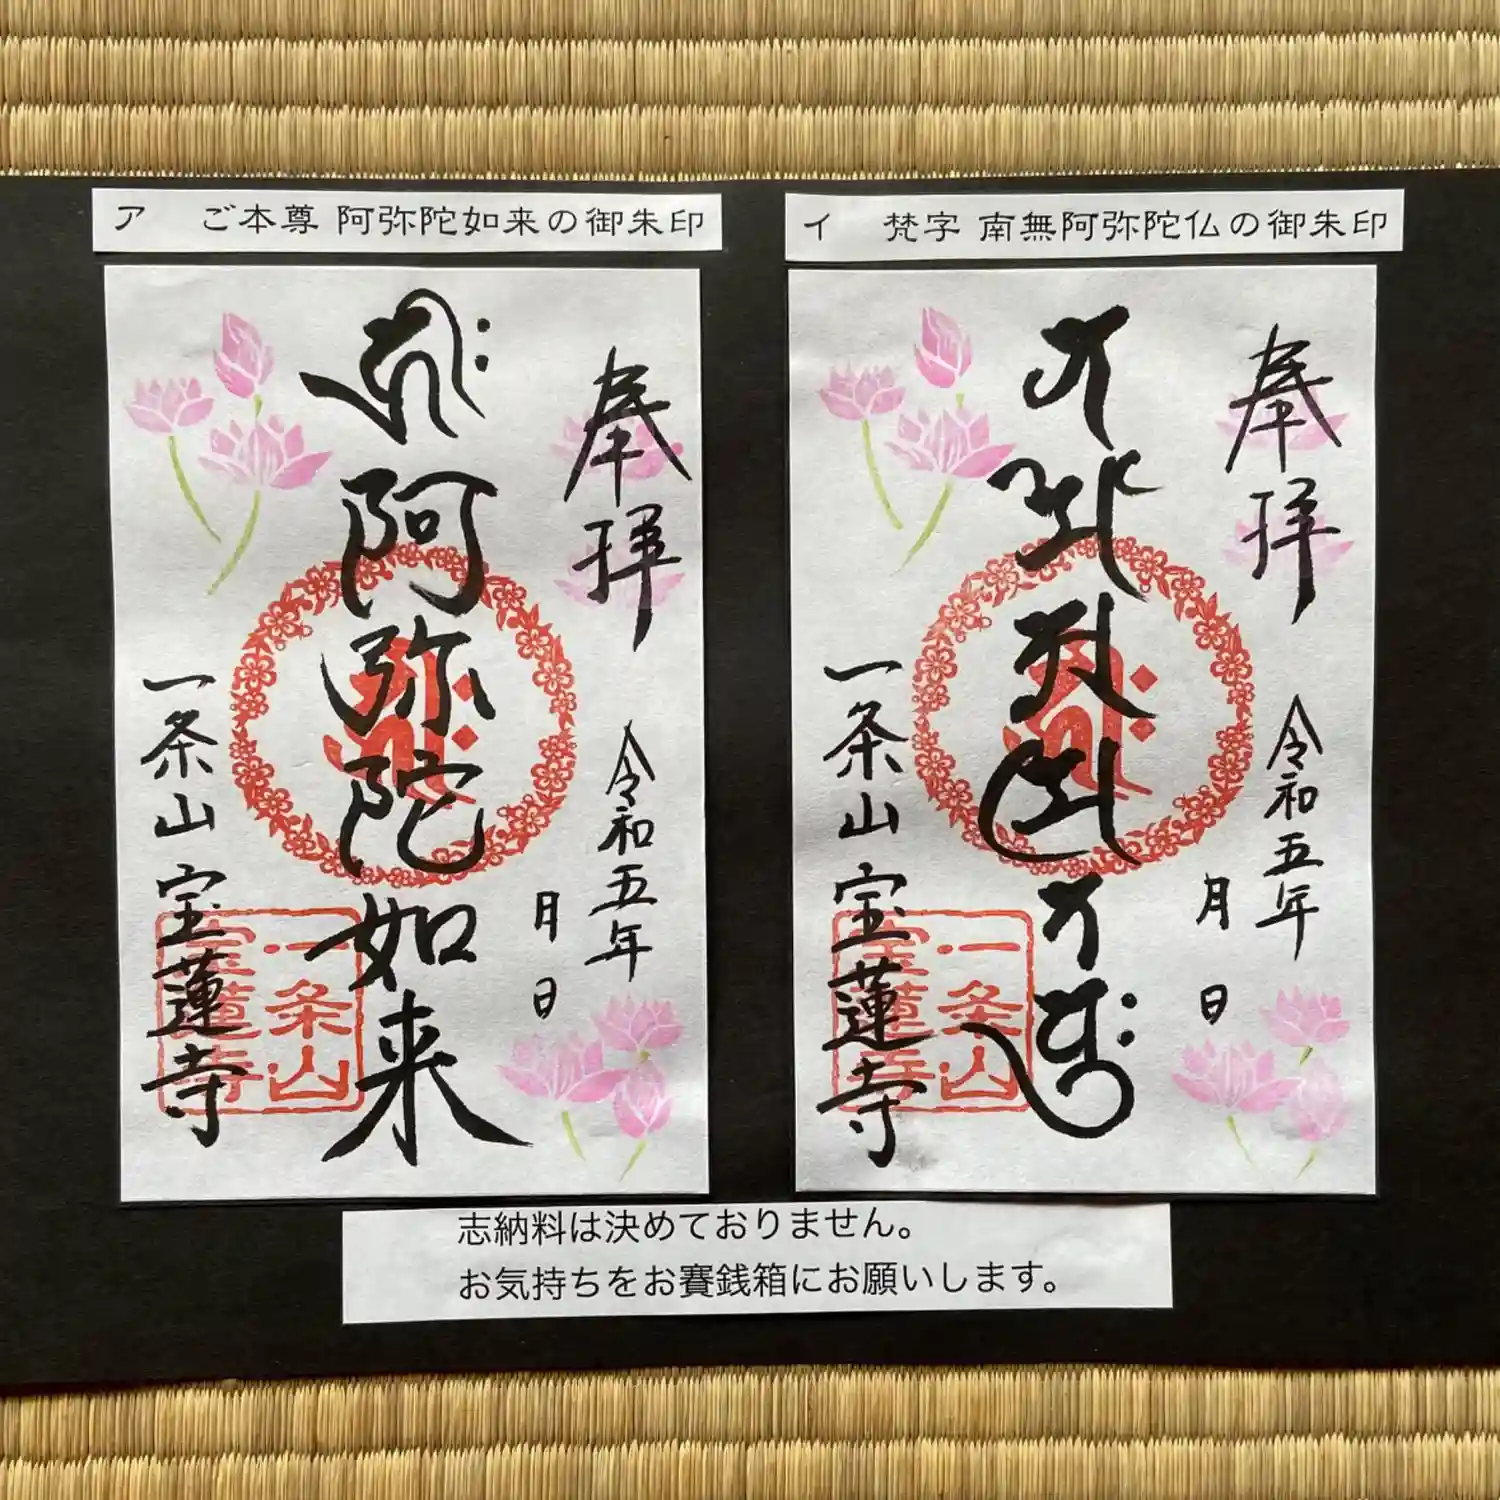 ア　ご本尊 阿弥陀如来の御朱印
奉拝
令和五年
月
日
阿弥陀如来
一条山
宝蓮寺
一条山宝蓮寺
イ　梵字 南無阿弥陀仏の御朱印
奉拝
令和五年
月
日
一条山
宝蓮寺
一条山宝蓮寺
志納料は決めておりません。
お気持ちをお賽銭箱にお願いします。